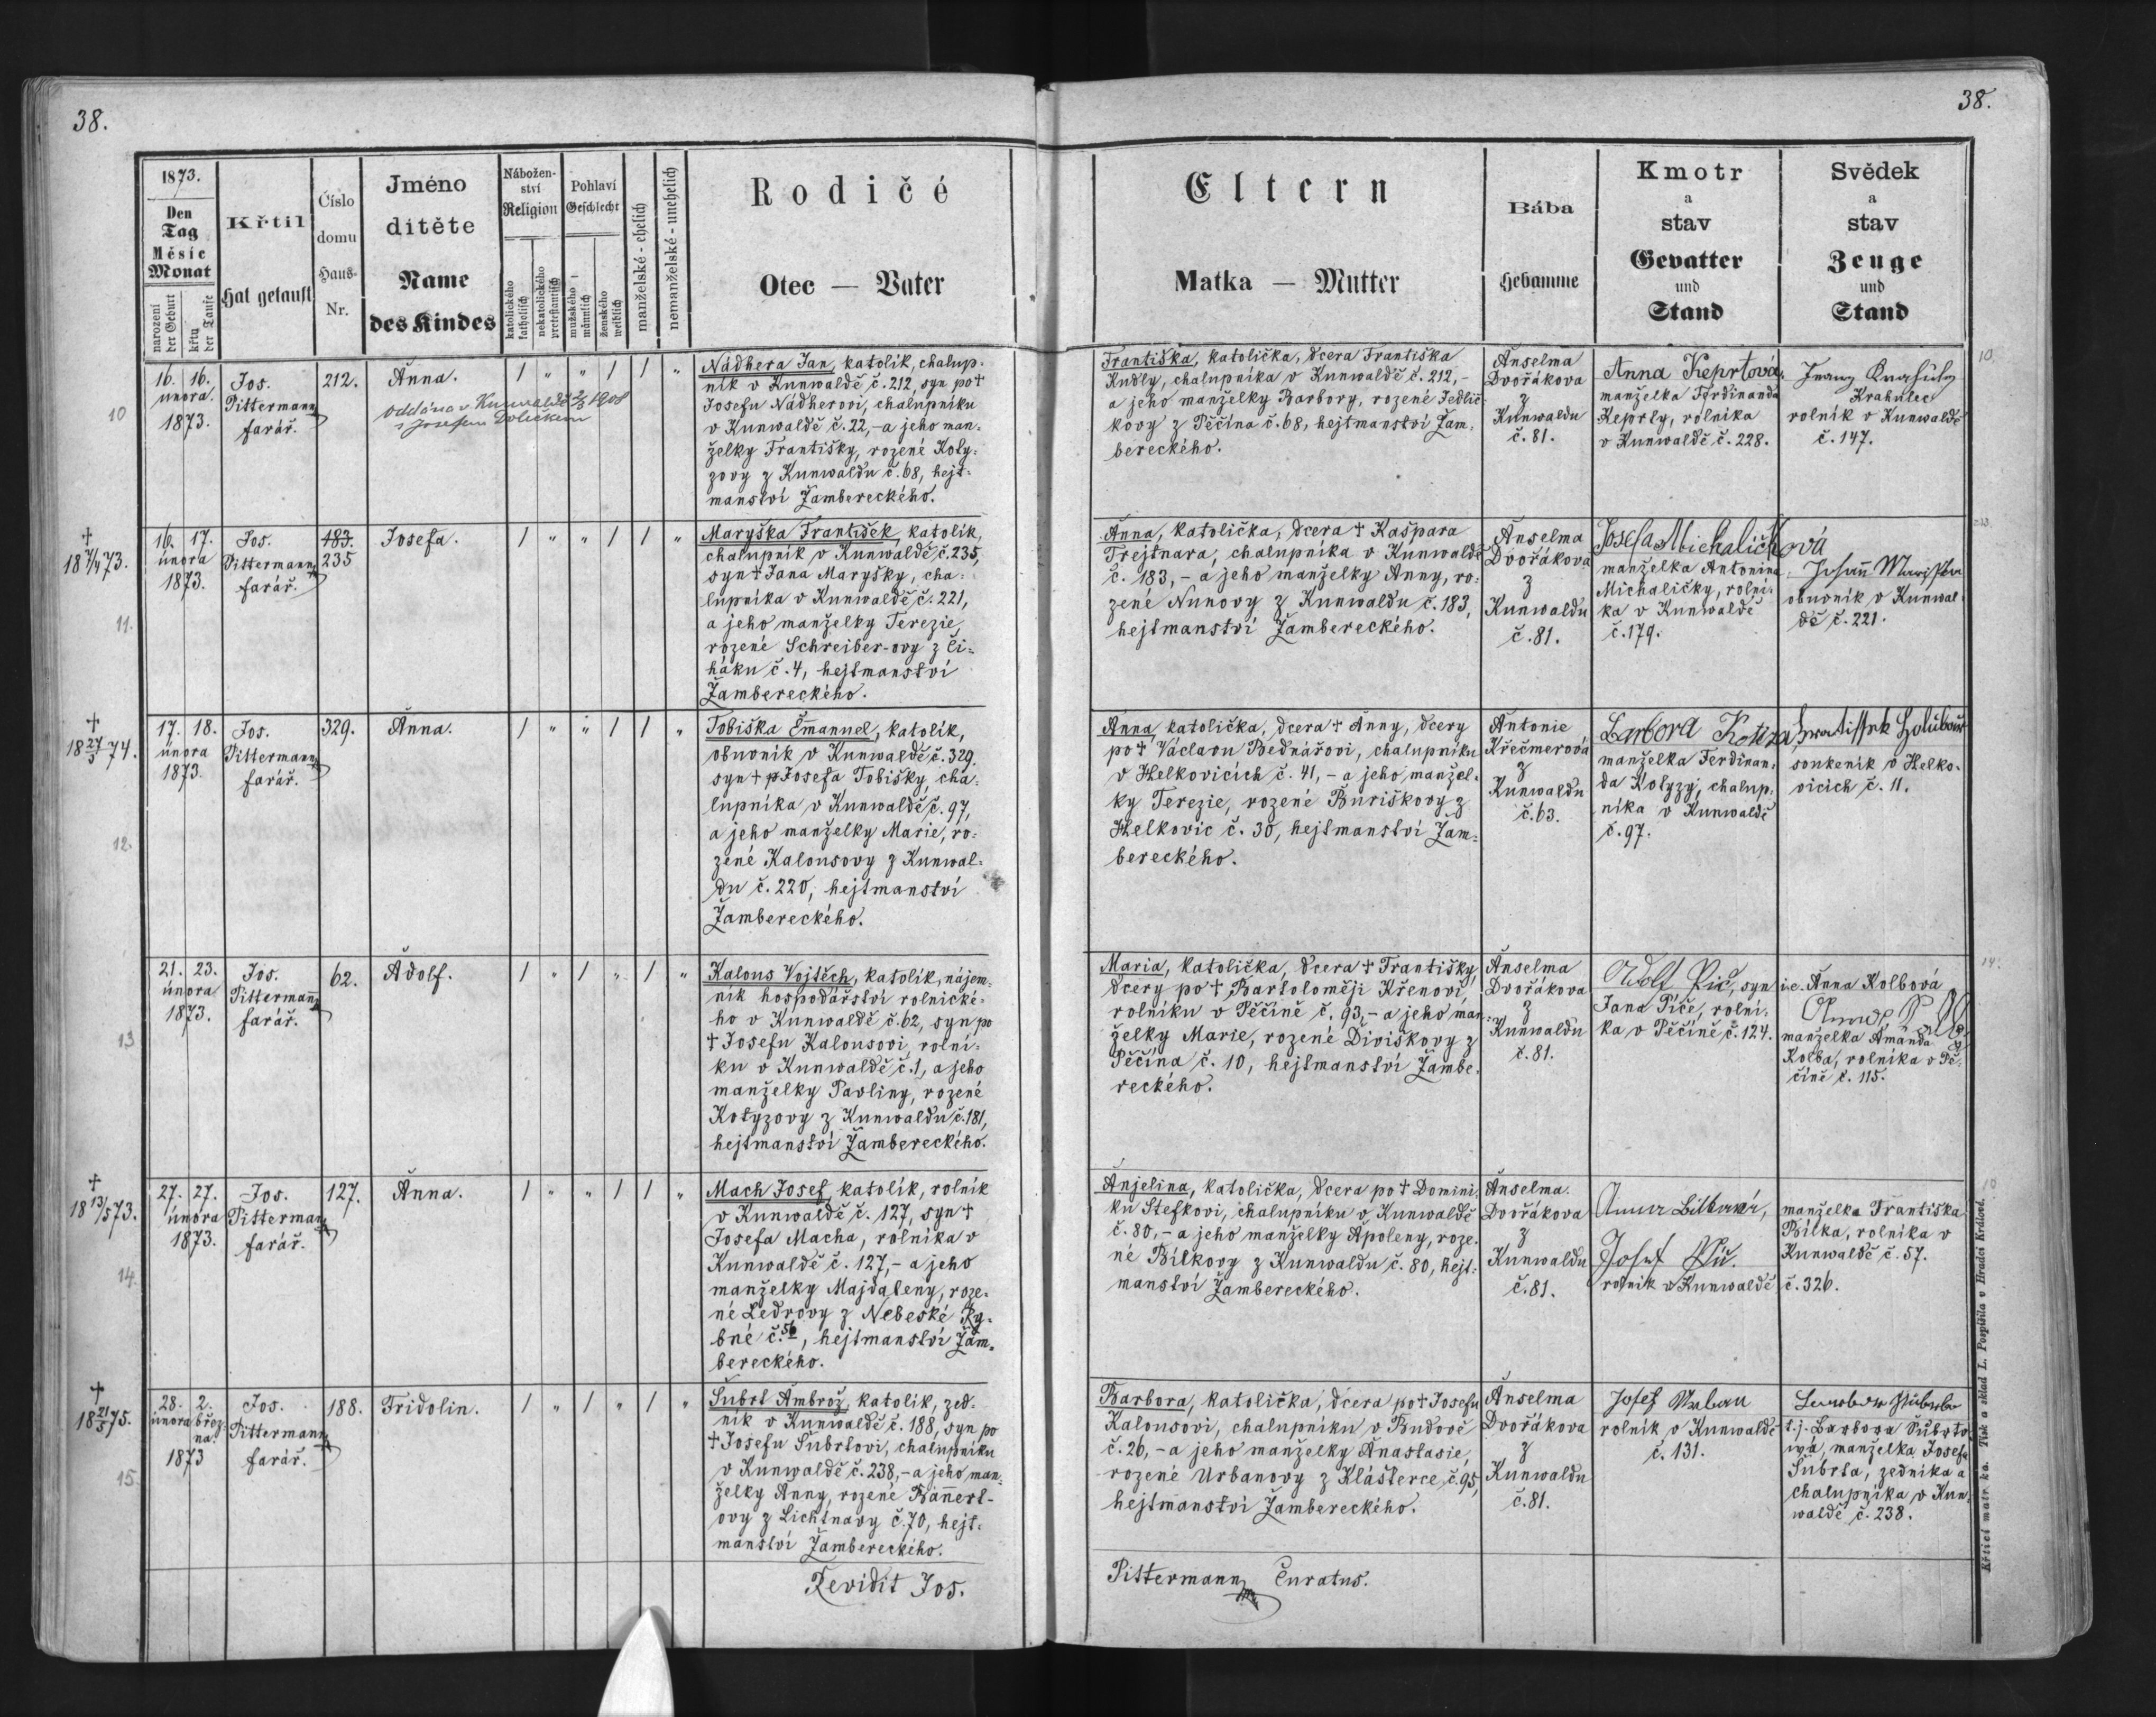 38.
38.
1873.
Den
Tag
Měsíc
Monat
narození
der Geburt
křtu
der Taufe
Křtil
Hat getauft
Číslo
domu
Haus-
Nr.
Jméno
dítěte
Name
des Kindes
Nábožen-
ství
Religion
katolického
katholisch
nekatolického
protestantisch
Pohlaví
Geschlecht
mužského
männlich
ženského
weiblich
manželské - ehelich
nemanželské - unehelich
Rodičé
Otec — Vater
Eltern
Matka — Mutter
Bába
Hebamme
Kmotr
a
stav
Gevatter
und
Stand
Svědek
a
stav
Zeuge
und
Stand
10
16. 16.
února.
1873.
Jos.
Pittermann
farář.
212.
Anna.
oddána v Kunvaldě 1908
s Josefem Dolečkem
/ " " / / "
Nádhera Jan, katolík, chalup-
ník v Kunwaldě č. 212, syn po †
Josefu Nádherovi, chalupníku
v Kunwaldě č. 22,- a jeho man-
želky Františky, rozené Koty-
zovy z Kunwaldu č. 68, hejt-
manství Žambereckého.
Františka, katolička, dcera Františka
Kudly, chalupníka v Kunwaldě č. 212,-
a jeho manželky Barbory, rozené Jedlič-
kovy z Pěčína č. 68, hejtmanství Žam-
bereckého.
Anselma
Dvořákova
z
Kunwaldu
č. 81.
Anna Keprtová,
manželka Ferdinanda
Keprty, rolníka
v Kunwaldě č. 228.
Krahulec
rolník v Kunwaldě
č. 147.
10.
†
18 7/4 73.
11.
16. 17.
února
1873.
Jos.
Pittermann
farář.
183.
235
Josefa.
/ " " / / "
Maryška František, katolík,
chalupník v Kunwaldě č. 235,
syn † Jana Maryšky, cha-
lupníka v Kunwaldě č. 221,
a jeho manželky Terezie,
rozené Schreiber-ovy z Či-
háku č. 4, hejtmanství
Žambereckého.
Anna, katolička, dcera † Kašpara
Trejtnara, chalupníka v Kunwaldě
č. 183,- a jeho manželky Anny, ro-
zené Nunovy z Kunwaldu č. 183,
hejtmanství Žambereckého.
Anselma
Dvořákova
z
Kunwaldu
č. 81.
Josefa Michaličková
manželka Antonína
Michaličky, rolní-
ka v Kunwaldě
č. 179.
obuvník v Kunwal-
dě č. 221.
†
18 27/5 74.
12.
17. 18.
února
1873.
Jos.
Pittermann
farář.
329.
Anna.
/ " " / / "
Tobiška Emanuel, katolík,
obuvník v Kunwaldě č. 329.
syn † p Josefa Tobišky, cha-
lupníka v Kunwaldě č. 97,
a jeho manželky Marie, ro-
zené Kalousovy z Kunwal-
du č. 220, hejtmanství
Žambereckého.
Anna, katolička, dcera † Anny, dcery
po † Václavu Bednářovi, chalupníku
v Helkovicích č. 41,- a jeho manžel-
ky Terezie, rozené Buriškovy z
Helkovic č. 30, hejtmanství Žam-
bereckého.
Antonie
Křečmerová
z
Kunwaldu
č. 63.
Barbora Kotiza
manželka Ferdinan-
da Kotyzy, chalup-
níka v Kunwaldě
č. 97.
soukeník v Helko-
vicích č. 11.
13
21. 23.
února
1873.
Jos.
Pittermann
farář.
62.
Adolf.
/ " / " / "
Kalous Vojtěch, katolík, nájem-
ník hospodářství rolnické-
ho v Kunwaldě č. 62, syn po
† Josefu Kalousovi, rolní-
ku v Kunwaldě č. 1, a jeho
manželky Pavliny, rozené
Kotyzovy z Kunwaldu č. 181,
hejtmanství Žambereckého.
Maria, katolička, dcera † Františky,
dcery po † Bartoloměji Křenovi,
rolníku v Pěčíně č. 93,- a jeho man-
želky Marie, rozené Diviškovy z
Pěčína č. 10, hejtmanství Žambe-
reckého.
Anselma
Dvořákova
z
Kunwaldu
č. 81.
Adolf Píč, syn
Jana Píče, rolní-
ka v Pěčíně č. 124.
i.e. Anna Kolbová
manželka Amanda
Kolba, rolníka v Pě-
číně č. 115.
14.
†
18 13/5 73.
14.
27. 27.
února
1873.
Jos.
Pitterman
farář.
127.
Anna.
/ " " / / "
Mach Josef, katolík, rolník
v Kunwaldě č. 127, syn †
Josefa Macha, rolníka v
Kunwaldě č. 127,- a jeho
manželky Majdaleny, roze-
né Ledrovy z Nebeské Ry-
bné č. 56, hejtmanství Žam-
bereckého.
Anjelina, katolička, dcera po † Domini-
ku Stefkovi, chalupníku v Kunwaldě
č. 80,- a jeho manželky Apoleny, roze-
né Bílkovy z Kunwaldu č. 80, hejt-
manství Žambereckého.
Anselma.
Dvořákova
z
Kunwaldu
č. 81.
Anna Bílková,
Josef Píč.
rolník v Kunwaldě
manželka Františka
Bílka, rolníka v
Kunwaldě č. 57.
č. 326.
†
18 21/5 75.
15.
28. 2.
února břez-
na.
1873
Jos.
Pittermann
farář.
188.
Fridolin.
/ " / " / "
Šubrt Ambrož, katolík, zed-
ník v Kunwaldě č. 188, syn po
† Josefu Šubrtovi, chalupníku
v Kunwaldě č. 238,- a jeho man-
želky Anny, rozené Bannert-
ovy z Lichtnavy č. 70, hejt-
manství Žambereckého.
Barbora, katolička, dcera po † Josefu
Kalousovi, chalupníku v Bubově
č. 26,- a jeho manželky Anastasie,
rozené Urbanovy z Klášterce č. 95,
hejtmanství Žambereckého.
Anselma
Dvořákova
z
Kunwaldu
č. 81.
Josef Urban
rolník v Kunwaldě
č. 131.
t.j. Barbora Šubrto-
wá, manželka Josefa
Šubrta, zedníka a
chalupníka v Kun-
waldě č. 238.
Revidit Jos.
Pittermann Curatus.
Křticí matrika. Tisk a sklad L. Pospíšila v Hradci Králové.